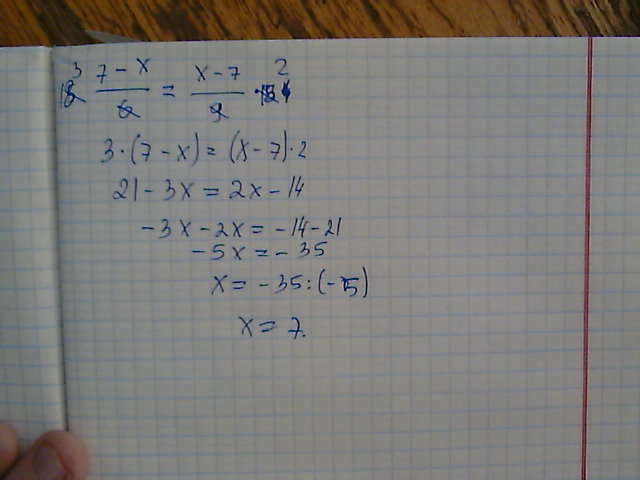 3 7 - x / 6 = x - 7 / 9 2
3 · (7 - x) = (x - 7) · 2
21 - 3x = 2x - 14
-3x - 2x = -14 - 21
-5x = -35
x = -35 : (-5)
x = 7.